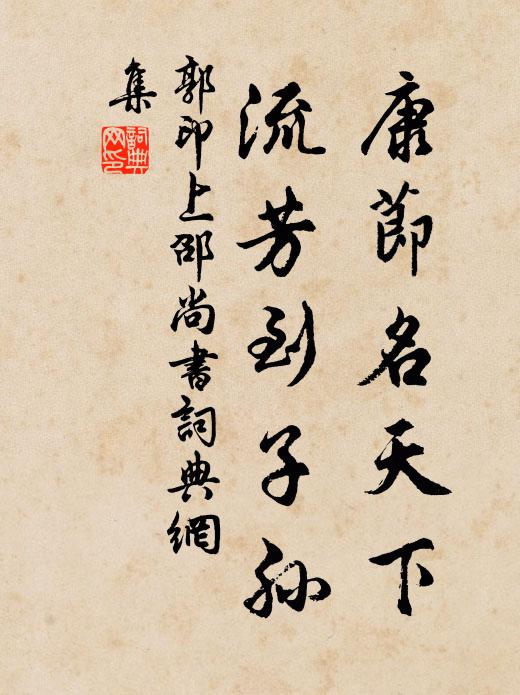 康節名天下
流芳到子孫
郭印上邵尚書詞典網
集
詞典网印